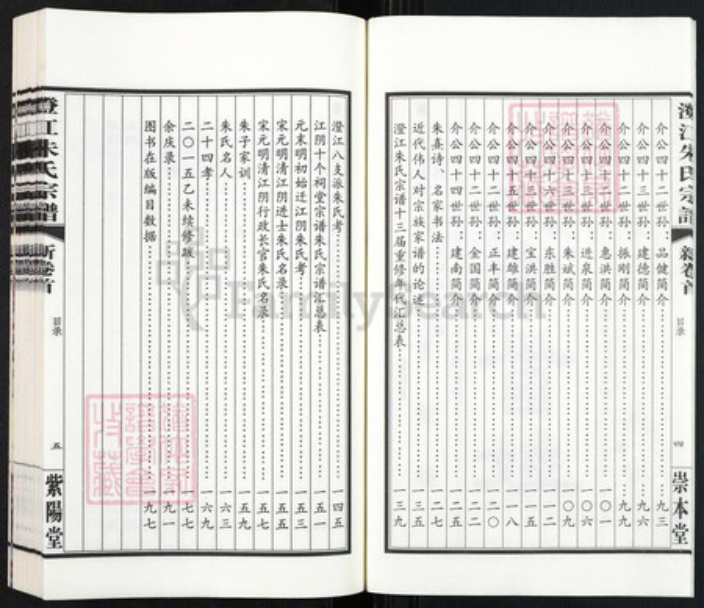 澄江朱氏宗譜
新卷首
目录
四
崇本堂
介公四十二世孙 品健简介 九三
介公四十三世孙 建德简介 九六
介公四十二世孙 振刚简介 九九
介公四十二世孙 惠洪简介 一〇一
介公四十二世孙 进泉简介 一〇六
介公四十三世孙 朱斌简介 一〇九
介公四十六世孙 东胜简介 一一二
介公四十三世孙 宝洪简介 一一五
介公四十五世孙 建雄简介 一一八
介公四十二世孙 正丰简介 一二〇
介公四十二世孙 金国简介 一二二
介公四十四世孙 建南简介 一二五
朱熹诗、名家书法 一二七
近代伟人对宗族家谱的论述 一三五
澄江朱氏宗谱十三届重修年代汇总表 一三九
澄江八支派朱氏考 一四五
江阴十个祠堂宗谱朱氏宗谱汇总表 一五一
元末明初始迁江阴朱氏考 一五三
宋元明清江阴进士朱氏名录 一五五
宋元明清江阴行政长官朱氏名录 一五七
朱子家训 一五九
朱氏名人 一六三
二十四孝 一六九
二〇一五乙未续修跋 一七七
余庆录 一九一
图书在版编目数据 一九七
澄江朱氏宗譜
新卷首
目录
五
紫陽堂
FamilySearch